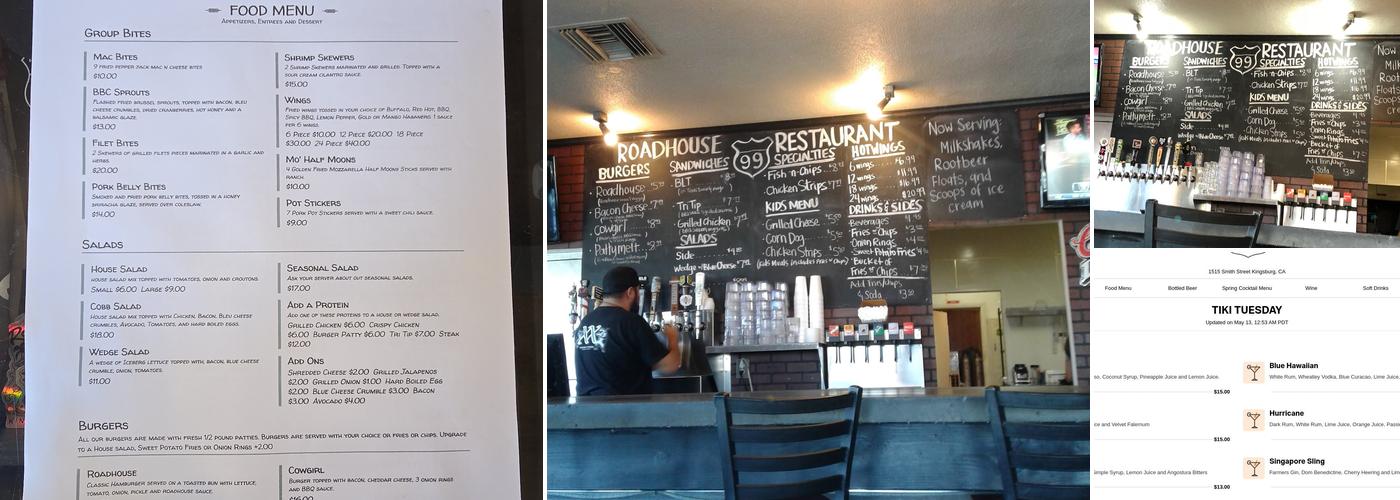 FOOD MENU
Appetizers, Entrees and Dessert
Group Bites
Mac Bites
9 fried pepper jack mac n cheese bites
$10.00
BBC Sprouts
Flashed fried brussel sprouts, topped with bacon, bleu
cheese crumbles, dried cranberries, hot honey and a
balsamic glaze.
$13.00
Filet Bites
2 Skewers of grilled filets pieces marinated in a garlic and
herbs.
$20.00
Pork Belly Bites
Smoked and fried pork belly bites, tossed in a honey
sriracha glaze, served over coleslaw.
$14.00
Shrimp Skewers
2 Shrimp Skewers marinated and grilled. Topped with a
sour cream cilantro sauce.
$15.00
Wings
Fried wings tossed in your choice of Buffalo, Red Hot, BBQ,
Spicy BBQ, Lemon Pepper, Gold or Mango Habanero. 1 sauce
per 6 wings.
6 Piece $10.00 12 Piece $20.00 18 Piece
$30.00 24 Piece $40.00
Mo' Half Moons
4 Golden Fried Mozzarella Half Moons Sticks served with
ranch.
$10.00
Pot Stickers
7 Pork Pot Stickers served with a sweet chili sauce.
$9.00
Salads
House Salad
House salad mix topped with tomatoes, onion and croutons.
Small $6.00 Large $9.00
Cobb Salad
House salad mix topped with Chicken, Bacon, Bleu cheese
crumbles, Avocado, Tomatoes, and hard boiled eggs.
$18.00
Wedge Salad
A wedge of Iceberg lettuce topped with, bacon, blue cheese
crumble, onion, tomatoes.
$11.00
Seasonal Salad
Ask your server about out seasonal salads.
$17.00
Add a Protein
Add one of these proteins to a house or wedge salad.
Grilled Chicken $6.00 Crispy Chicken
$6.00 Burger Patty $6.00 Tri Tip $7.00 Steak
$12.00
Add Ons
Shredded Cheese $2.00 Grilled Jalapenos
$2.00 Grilled Onion $1.00 Hard Boiled Egg
$2.00 Blue Cheese Crumble $3.00 Bacon
$3.00 Avocado $4.00
Burgers
All our burgers are made with fresh 1/2 pound patties. Burgers are served with your choice or fries or chips. Upgrade
to a House salad, Sweet Potato Fries or Onion Rings +2.00
Roadhouse
Classic Hamburger served on a toasted bun with lettuce,
tomato, onion, pickle and roadhouse sauce.
Cowgirl
Burger topped with bacon, cheddar cheese, 3 onion rings
and BBQ sauce.
ROADHOUSE 99 RESTAURANT
BURGERS
Roadhouse
Bacon Cheese
Cowgirl
Pattymelt
SANDWICHES
BLT
Tri Tip
Grilled Chicken
SALADS
Side
Wedge w/ Blue Cheese
SPECIALTIES
Fish n Chips
Chicken Strips
KIDS MENU
Grilled Cheese
Corn Dog
Chicken Strips
HOTWINGS
6 wings $6.99
12 wings $11.99
18 wings $16.99
24 wings
DRINKS & SIDES
Beverages
Fries or Chips
Onion Rings
Sweet Potato Fries
Bucket of
Fries or Chips
& Soda $3.50
Now Serving:
Milkshakes,
Rootbeer
Floats, and
Scoops of ice
cream
ROADHOUSE 99 RESTAURANT
BURGERS
Roadhouse
Bacon Cheese
Cowgirl
Pattymelt
SANDWICHES
BLT
Tri Tip
Grilled Chicken
SALADS
Side
SPECIALTIES
Fish n Chips
Chicken Strips
KIDS MENU
Grilled Cheese
Corn Dog
Chicken Strips
HOTWINGS
6 wings $6.99
12 wings $11.99
18 wings $16.99
24 wings
DRINKS & SIDES
Beverages
Fries or Chips
Onion Rings
Sweet Potato Fries
Bucket of
Fries or Chips
& Soda $3.50
Now
1515 Smith Street Kingsburg, CA
Food Menu Bottled Beer Spring Cocktail Menu Wine Soft Drinks
TIKI TUESDAY
Updated on May 13, 12:53 AM PDT
so, Coconut Syrup, Pineapple Juice and Lemon Juice.
$15.00
ce and Velvet Falernum
$15.00
Simple Syrup, Lemon Juice and Angostura Bitters
$13.00
Blue Hawaiian
White Rum, Wheatley Vodka, Blue Curacao, Lime Juice,
Hurricane
Dark Rum, White Rum, Lime Juice, Orange Juice, Passi
Singapore Sling
Farmers Gin, Dom Benedictine, Cherry Heering and Lim